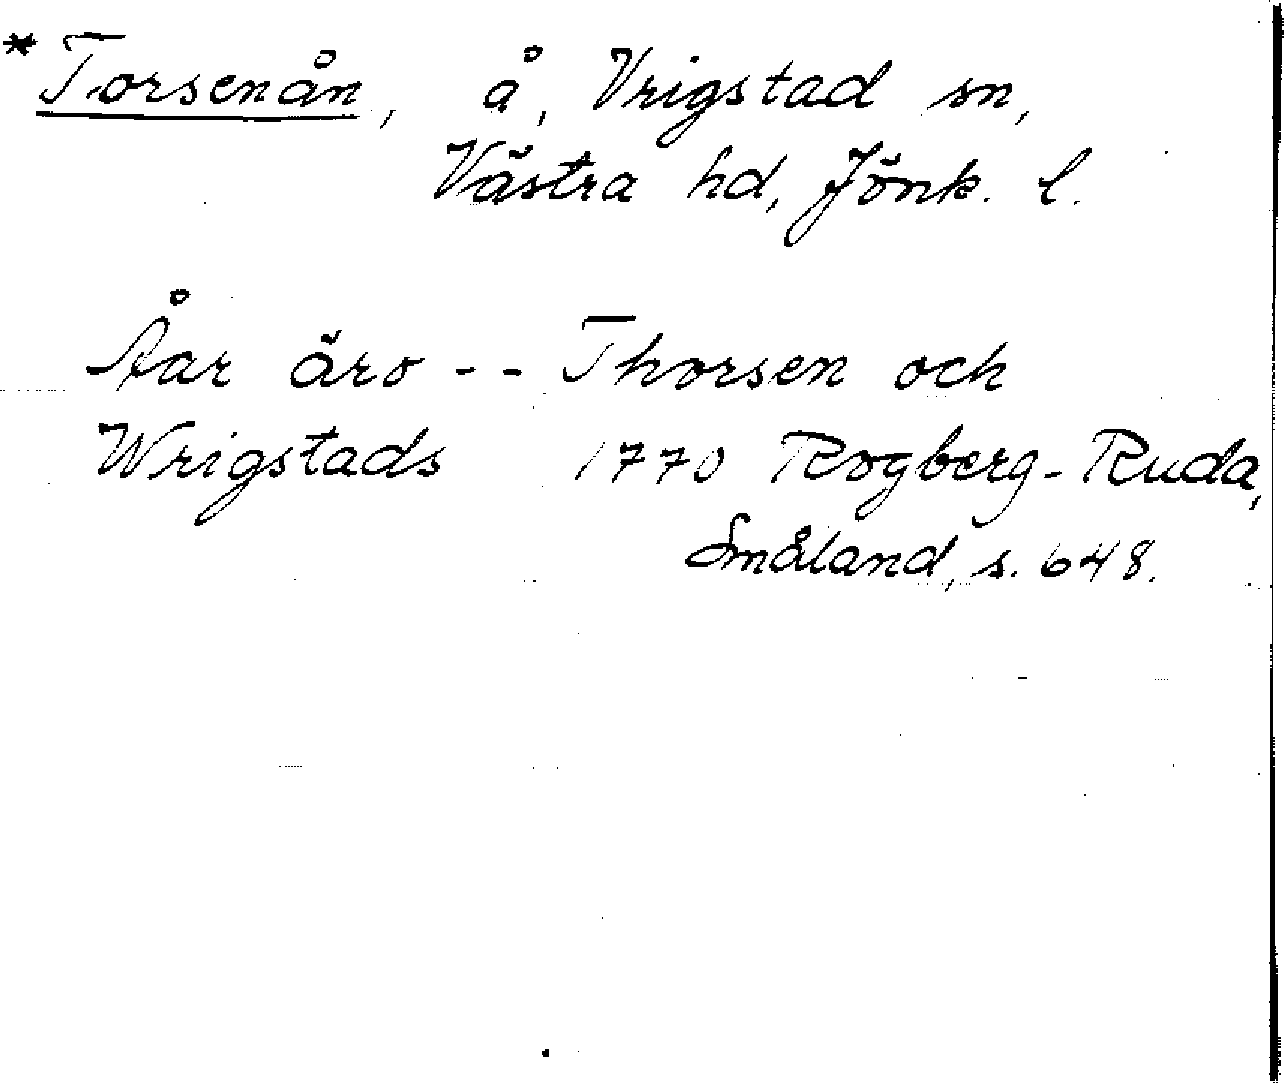 * Torsenån, å, Vrigstad sn,
Västra hd, Jönk. l.
Åar äro -- Thorsen och
Wrigstads 1770 Rogberg-Ruda,
Småland, s. 648.